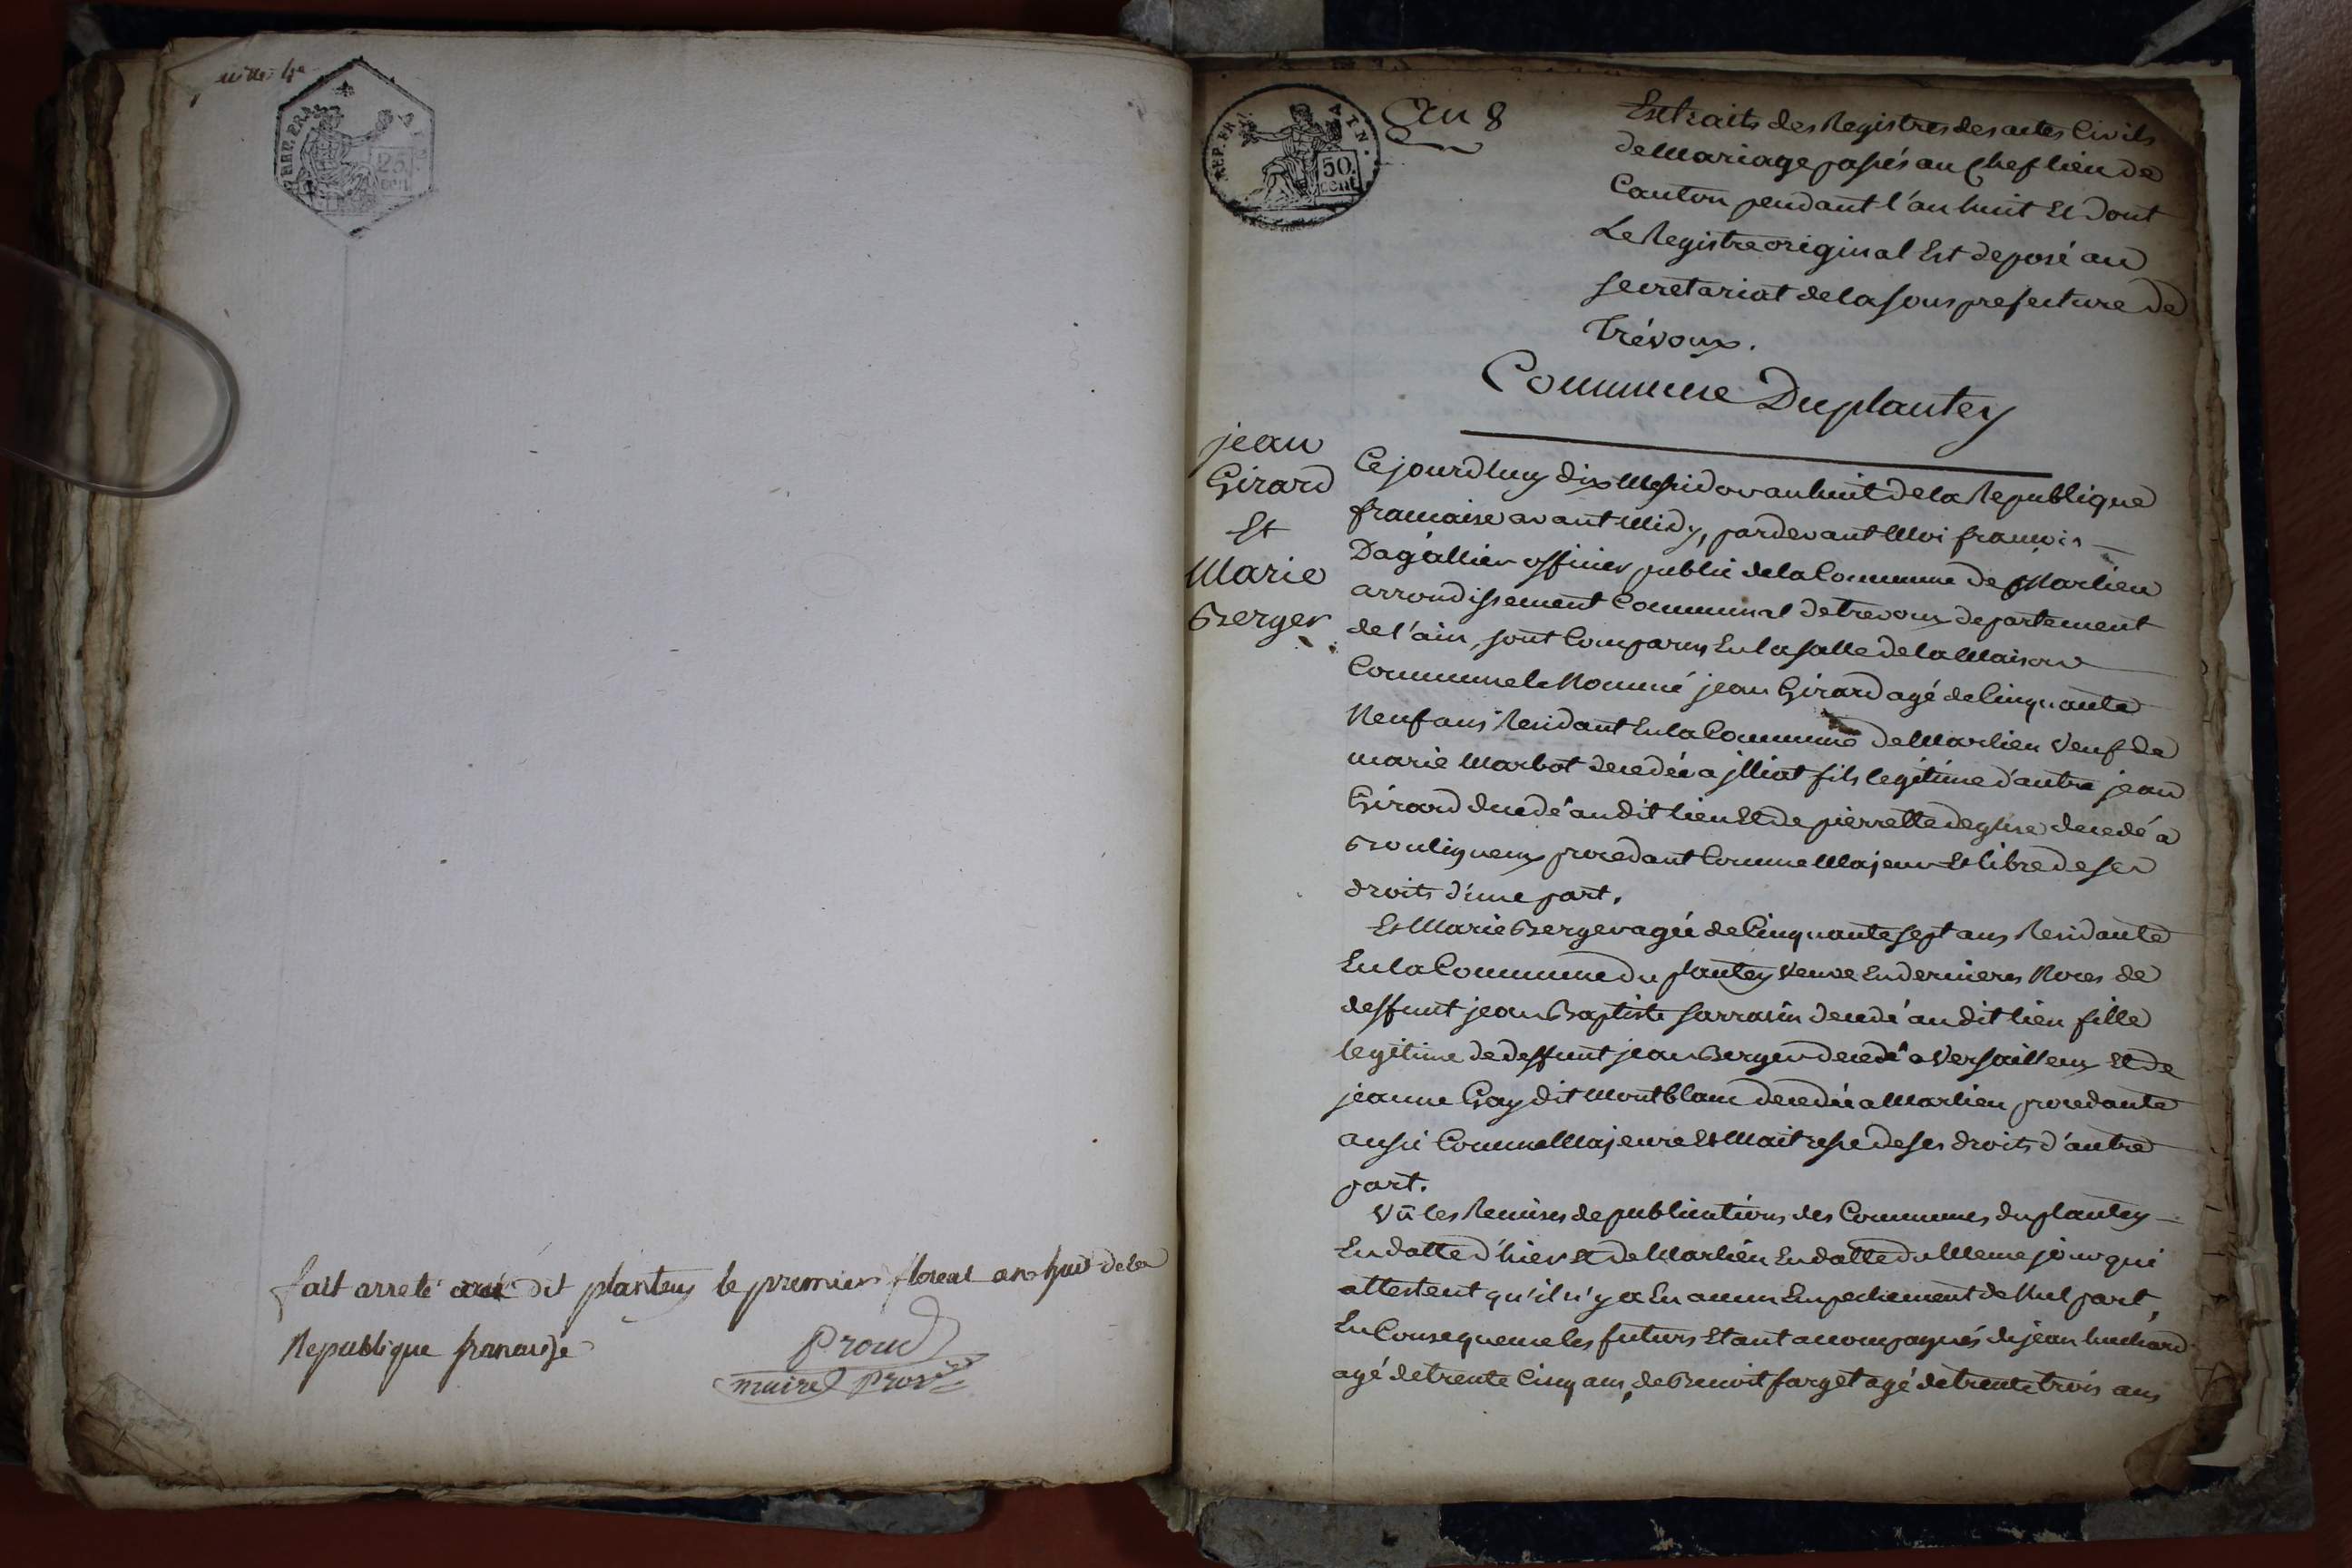 REP. FRA.
25.
cent
fait arreté au dit plantey le premier floreal an huit de la
Republique francaise
Proud
maire provre
REP. FRA.
AIN.
50.
cent
An 8
Extraits des Registres des actes Civils
de Mariage passés au Chef lieu de
Canton pendant l'an huit Et dont
Le Registre original Est deposé au
secretariat de la sous prefecture de
Trévoux.
Commune Du plantey
jean
Girard
Et
Marie
Berger
Ce jourd huy dix Messidor an huit de la Republique
francaise avant Midy, pardevant Moi francois
Dagallier officier public de la Commune de Marlieu
arrondissement Communal de trevoux departement
de l'ain, sont Comparus En la salle de la Maison
Commune le Nommé jean Girard agé de Cinquante
Neuf ans Residant En la Commune de Marlieu veuf de
marie Marbot decedée a jlliat fils legitime d'autre jean
Girard decedé audit lieu Et de pierrette deglise decedé a
Bouligneux procedant Comme Majeur Et libre de ses
droits d'une part.
Et Marie Berger agée de Cinquante sept ans Residante
En la Commune du plantey veuve En dernieres Noces de
deffunt jean Baptiste sarrasin decedé audit lieu fille
legitime de deffunt jean Berger decedé a Versailleux Et de
jeanne Gay dit Montblanc decedée a Marlieu procedante
aussi Comme Majeure Et Maitresse de ses droits d'autre
part.
Vû les Remises de publications des Communes du plantey
En datte d'hier Et de Marlieu En datte du Meme jour qui
attestent qu'il n'y a Eu aucun Empechement de Nul part,
En Consequence les futurs Etant accompagnés de jean huchard
agé de trente Cinq ans, de Benoit farget agé de trente trois ans